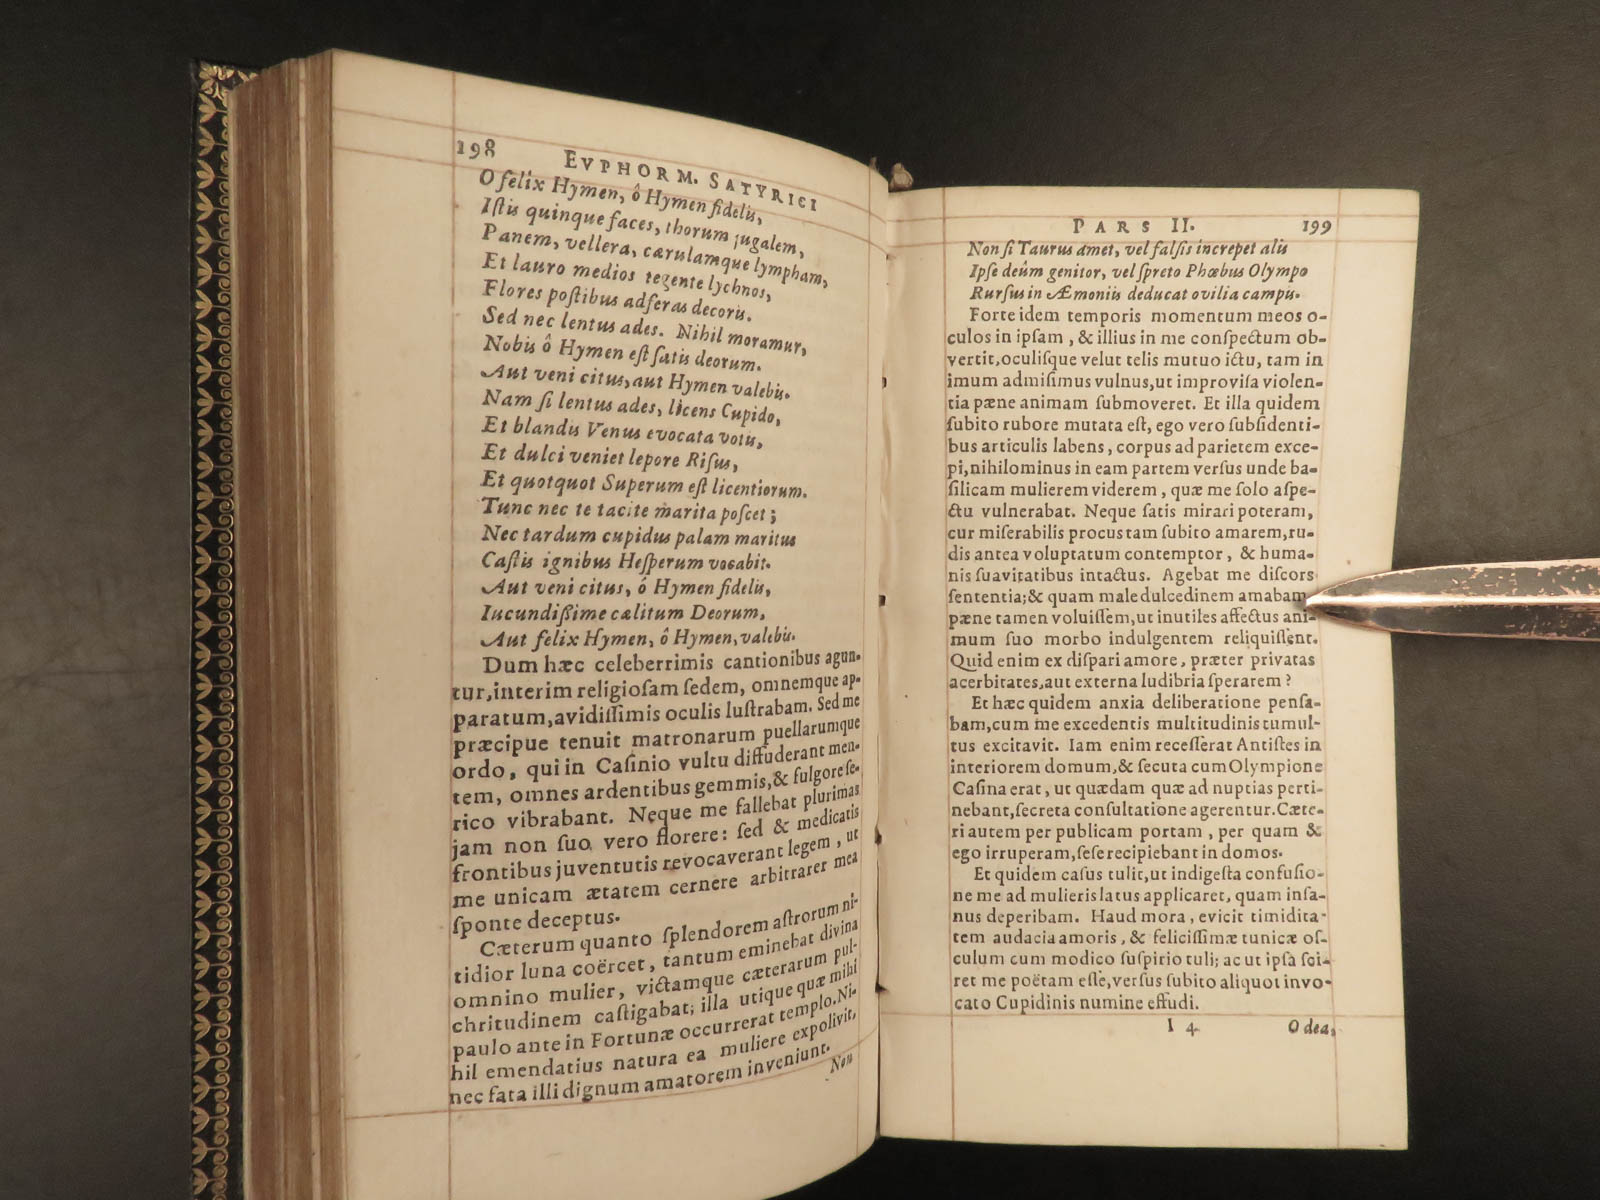 198 EVPHORM. SATYRICI
O felix Hymen, ô Hymen fidelis,
Iſtis quinque faces, thorum jugalem,
Panem, vellera, cærulamque lympham,
Et lauro medios tegente lychnos,
Flores poſtibus adferas decoris.
Sed nec lentus ades. Nihil moramur,
Nobis ô Hymen eſt ſatis deorum.
Aut veni citus, aut Hymen valebis.
Nam ſi lentus ades, licens Cupido,
Et blandis Venus evocata votis,
Et dulci veniet lepore Riſus,
Et quotquot Superum eſt licentiorum.
Tunc nec te tacite marita poſcet;
Nec tardum cupidus palam maritus
Caſtis ignibus Heſperum vocabit.
Aut veni citus, ô Hymen fidelis,
Iucundißime cælitum Deorum,
Aut felix Hymen, ô Hymen, valebis.
Dum hæc celeberrimis cantionibus agun-
tur, interim religioſam ſedem, omnemque ap-
paratum, avidiſſimis oculis luſtrabam. Sed me
præcipue tenuit matronarum puellarumque
ordo, qui in Caſinio vultu diffuderant men-
tem, omnes ardentibus gemmis, & fulgore ſe-
rico vibrabant. Neque me fallebat plurimas
jam non ſuo vero florere: ſed & medicatis
frontibus juventutis revocaverant legem, ut
me unicam ætatem cernere arbitrarer mea
ſponte deceptus.
Cæterum quanto ſplendorem aſtrorum ni-
tidior luna coërcet, tantum eminebat divina
omnino mulier, victamque cæterarum pul-
chritudinem caſtigabat; illa utique quæ mihi
paulo ante in Fortunæ occurrerat templo. Ni-
hil emendatius natura ea muliere expolivit,
nec fata illi dignum amatorem inveniunt.
Non
PARS II. 199
Non ſi Taurus amet, vel falſis increpet alis
Ipſe deûm genitor, vel ſpreto Phœbus Olympo
Rurſus in Æmoniis deducat ovilia campis.
Forte idem temporis momentum meos o-
culos in ipſam, & illius in me conſpectum ob-
vertit, oculiſque velut telis mutuo ictu, tam in
imum admiſimus vulnus, ut improviſa violen-
tia pæne animam ſubmoveret. Et illa quidem
ſubito rubore mutata eſt, ego vero ſubſidenti-
bus articulis labens, corpus ad parietem exce-
pi, nihilominus in eam partem verſus unde ba-
ſilicam mulierem viderem, quæ me ſolo aſpe-
ctu vulnerabat. Neque ſatis mirari poteram,
cur miſerabilis procus tam ſubito amarem, ru-
dis antea voluptatum contemptor, & huma-
nis ſuavitatibus intactus. Agebat me diſcors
ſententia; & quam male dulcedinem amabam
pæne tamen voluiſſem, ut inutiles affectus ani-
mum ſuo morbo indulgentem reliquiſſent.
Quid enim ex diſpari amore, præter privatas
acerbitates, aut externa ludibria ſperarem?
Et hæc quidem anxia deliberatione penſa-
bam, cum me excedentis multitudinis tumul-
tus excitavit. Iam enim receſſerat Antiſtes in
interiorem domum, & ſecuta cum Olympione
Caſina erat, ut quædam quæ ad nuptias perti-
nebant, ſecreta conſultatione agerentur. Cæte-
ri autem per publicam portam, per quam &
ego irruperam, ſeſe recipiebant in domos.
Et quidem caſus tulit, ut indigeſta confuſio-
ne me ad mulieris latus applicaret, quam inſa-
nus deperibam. Haud mora, evicit timidita-
tem audacia amoris, & feliciſſimæ tunicæ oſ-
culum cum modico ſuſpirio tuli; ac ut ipſa ſci-
ret me poëtam eſſe, verſus ſubito aliquot invo-
cato Cupidinis numine effudi.
I 4 O dea,